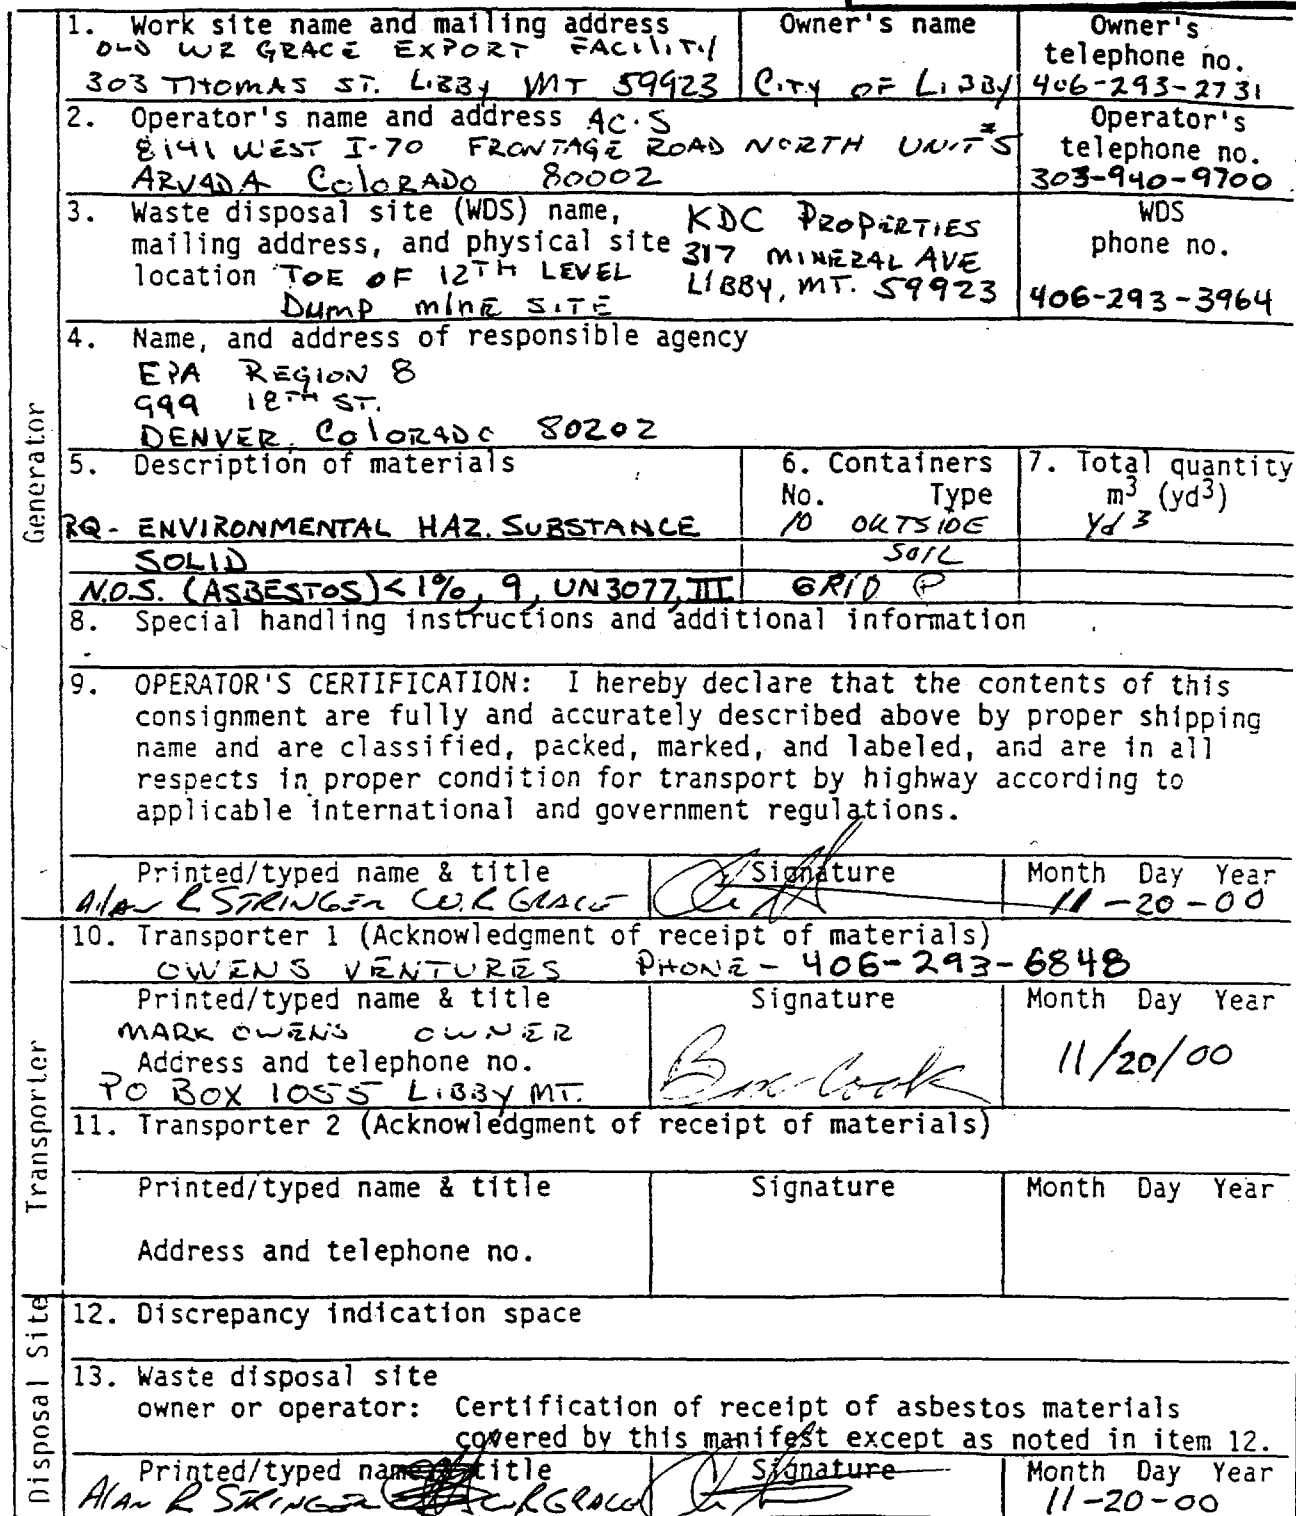 1. Work site name and mailing address
OLD WR GRACE EXPORT FACILITY
303 THOMAS ST. LIBBY MT 59923
Owner's name
CITY OF LIBBY
Owner's
telephone no.
406-293-2731
2. Operator's name and address AC·S
8141 WEST I-70 FRONTAGE ROAD NORTH UNIT #5
ARVADA COLORADO 80002
Operator's
telephone no.
303-940-9700
3. Waste disposal site (WDS) name,
mailing address, and physical site
location TOE OF 12TH LEVEL
DUMP MINE SITE
KDC PROPERTIES
317 MINERAL AVE
LIBBY, MT. 59923
WDS
phone no.
406-293-3964
Generator
4. Name, and address of responsible agency
EPA REGION 8
999 18TH ST.
DENVER, COLORADO 80202
5. Description of materials
6. Containers
No. Type
7. Total quantity
m3 (yd3)
RQ - ENVIRONMENTAL HAZ. SUBSTANCE
10 OUTSIDE
Yd 3
SOLID
SOIL
N.O.S. (ASBESTOS) < 1%, 9, UN3077, III
GRID P
8. Special handling instructions and additional information
9. OPERATOR'S CERTIFICATION: I hereby declare that the contents of this
consignment are fully and accurately described above by proper shipping
name and are classified, packed, marked, and labeled, and are in all
respects in proper condition for transport by highway according to
applicable international and government regulations.
Printed/typed name & title
Signature
Month Day Year
Alan R STRINGER W.R GRACE
11-20-00
Transporter
10. Transporter 1 (Acknowledgment of receipt of materials)
OWENS VENTURES PHONE - 406-293-6848
Printed/typed name & title
Signature
Month Day Year
MARK OWENS OWNER
Address and telephone no.
PO BOX 1055 LIBBY MT.
Cook
11/20/00
11. Transporter 2 (Acknowledgment of receipt of materials)
Printed/typed name & title
Signature
Month Day Year
Address and telephone no.
Disposal Site
12. Discrepancy indication space
13. Waste disposal site
owner or operator: Certification of receipt of asbestos materials
covered by this manifest except as noted in item 12.
Printed/typed name & title
Signature
Month Day Year
Alan R STRINGER WR GRACE
11-20-00